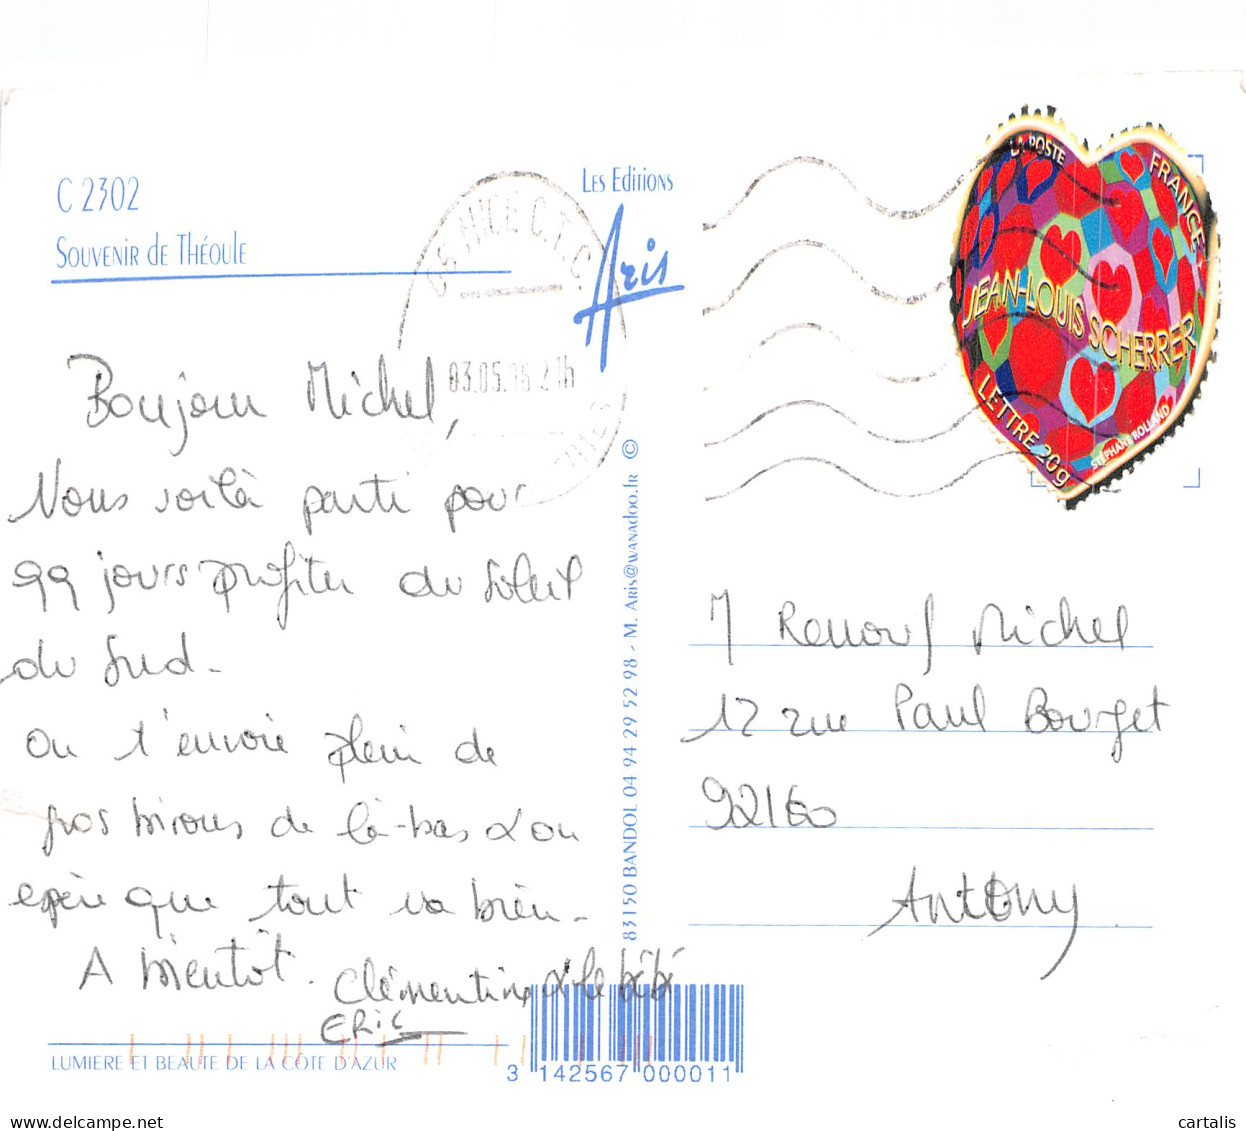 C 2302
Souvenir de Théoule
Les Editions
Aris
06 NICE C.T.C.
03.05.06 21h
LA POSTE
FRANCE
JEAN-LOUIS SCHERRER
LETTRE 20g
STÉPHANE ROLLAND
Bonjour Michel,
Nous voilà parti pour
99 jours profiter du soleil
du Sud-
On t'envoie plein de
gros bisous de là-bas & on
espère que tout va bien-
A bientôt.
Clémentine & le bébé
ERIC
83150 BANDOL 04 94 29 52 98 - M. Aris@wanadoo.fr ©
M Renouf Michel
12 rue Paul Bourget
92160
Antony
LUMIERE ET BEAUTE DE LA CÔTE D'AZUR
3 142567 000011
delcampe.net
cartalis